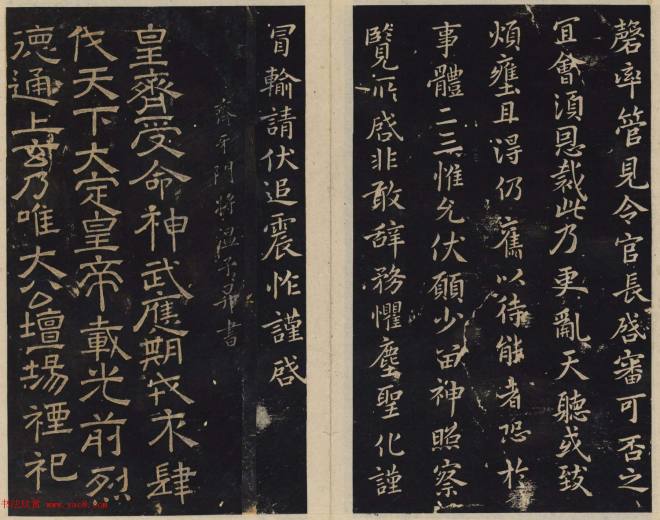 磬率管見令官長啓審可否之
宜會須恩裁此乃更亂天聽或致
煩壅且淂仍舊以待能者恐於
事體二三惟允伏願少留神照察
覽所啓非敢辞務懼塵聖化謹
冒輸請伏追震怍謹啓
書
皇齊受命神武應期戎衣肆
伐天下大定皇帝載光前烈
德通上玄乃唯大公壇場禋祀
书法欣赏 www.yac8.com